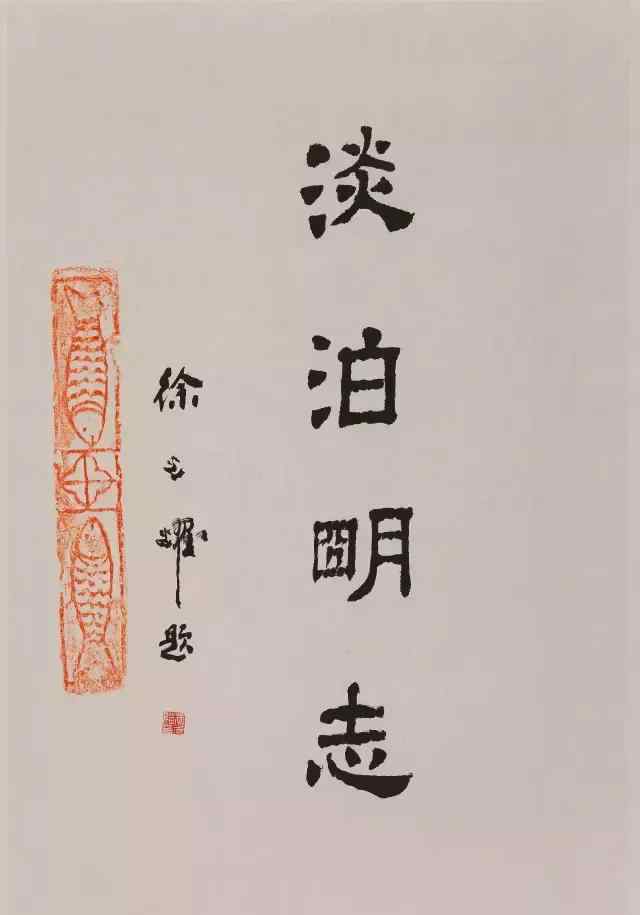 淡泊明志
徐耀题